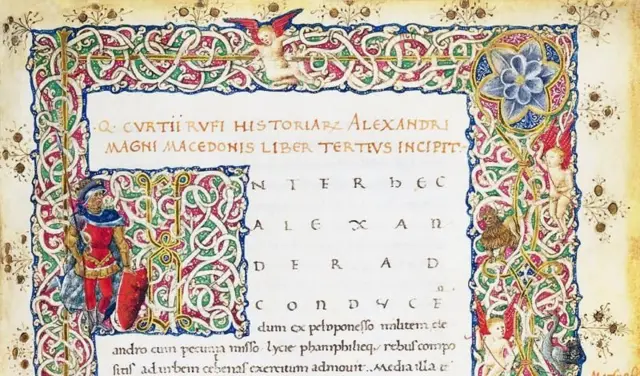 ·Q· CVRTII RVFI HISTORIARꝜ ALEXANDRI
MAGNI MACEDONIS LIBER TERTIVS INCIPIT·
I NTER hEC
ALEXAN
DER AD
CONDVCE
dum ex peloponesso militem cle
andro cum pecunia misso· lycie phamphilieq; rebus compo
sitis ad urbem celenas exercitum admouit.. Media illa